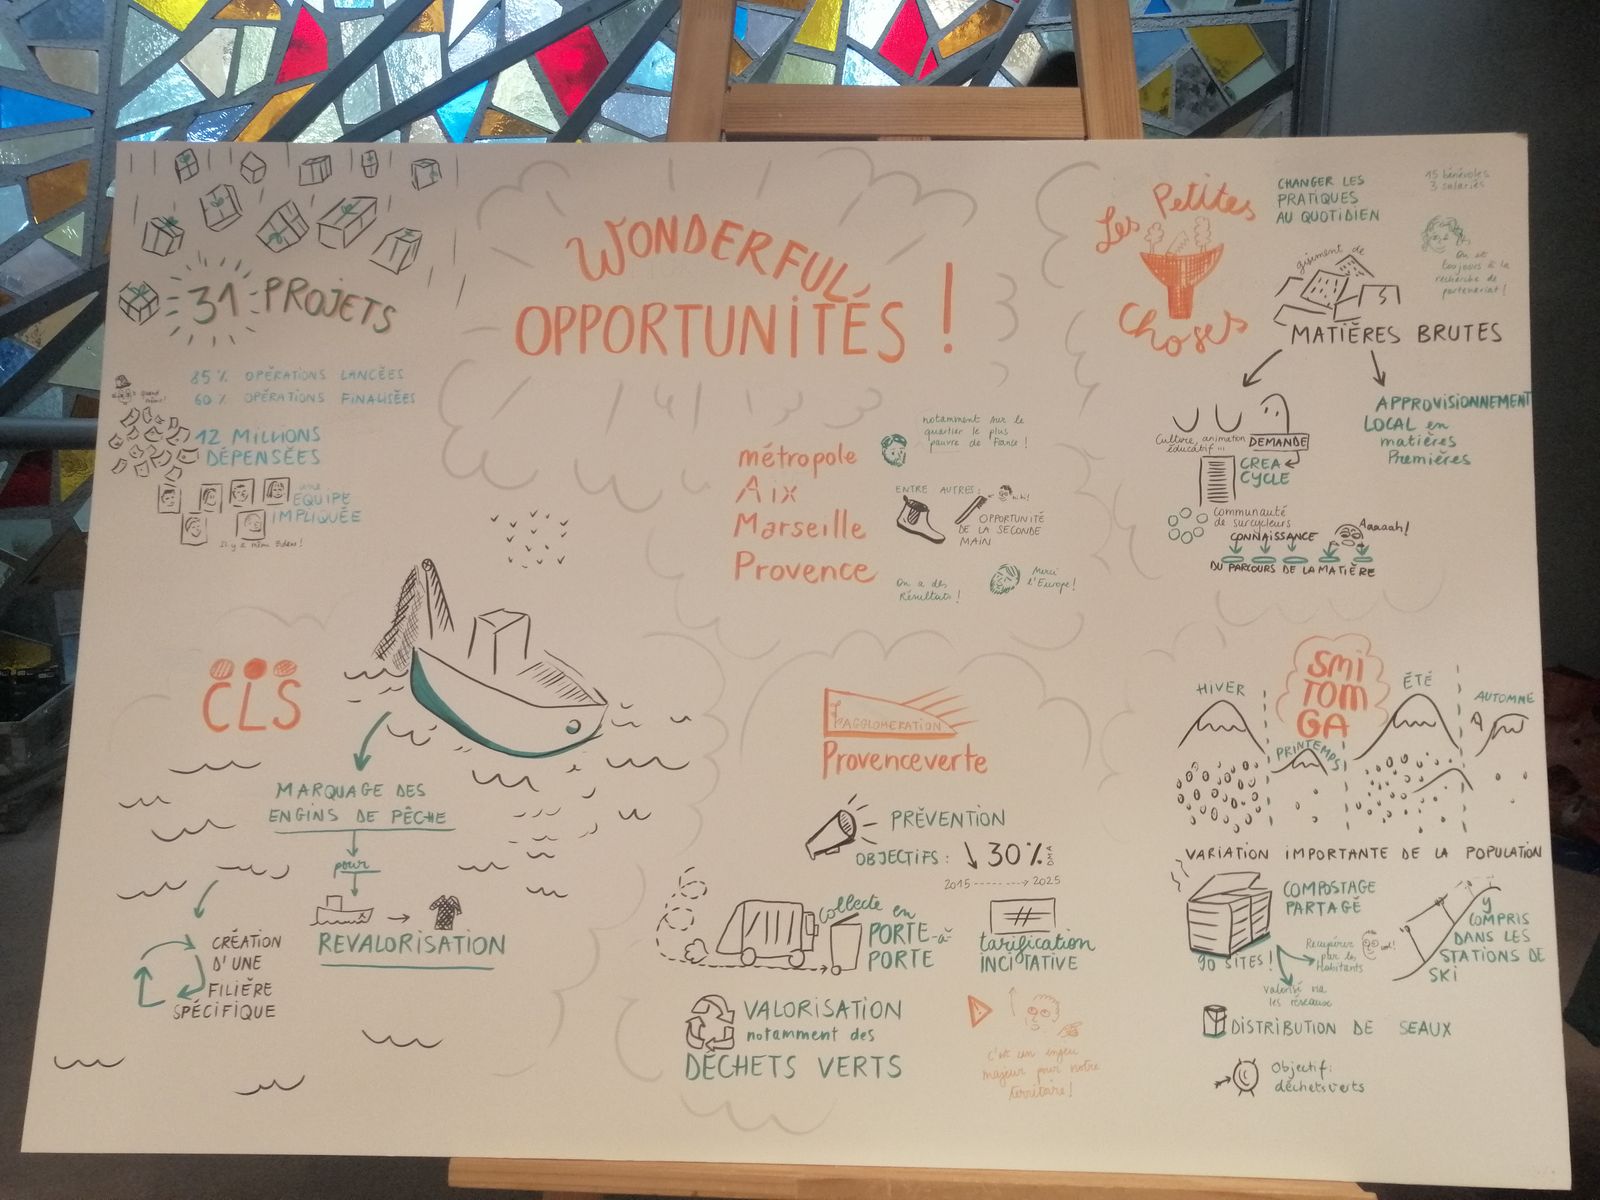 WONDERFUL
OPPORTUNITÉS !
31 PROJETS
85% OPÉRATIONS LANCÉES
60% OPÉRATIONS FINALISÉES
12 MILLIONS
DÉPENSÉES
une
EQUIPE
IMPLIQUÉE
métropole
Aix
Marseille
Provence
notamment sur le
quartier le plus
pauvre de France !
ENTRE AUTRES :
OPPORTUNITÉ
DE LA SECONDE
MAIN
On a des
Résultats !
Merci
l'Europe !
Les Petites
Choses
CHANGER LES
PRATIQUES
AU QUOTIDIEN
15 bénévoles
3 salariés
On est
toujours à la
recherche de
partenariat !
gisement de
MATIÈRES BRUTES
APPROVISIONNEMENT
LOCAL en
matières
Premières
Culture, animation
éducatif ...
DEMANDE
CREA
CYCLE
communauté
de surcycleurs
CONNAISSANCE
Aaaaah!
DU PARCOURS DE LA MATIÈRE
CLS
MARQUAGE DES
ENGINS DE PÊCHE
pour
REVALORISATION
CRÉATION
D'UNE
FILIÈRE
SPÉCIFIQUE
l'AGGLOMERATION
Provence verte
PRÉVENTION
OBJECTIFS : 30% DMA
2015 -----> 2025
collecte en
PORTE-à-
PORTE
tarification
INCITATIVE
VALORISATION
notamment des
DÉCHETS VERTS
c'est un enjeu
majeur pour notre
territoire !
SMI
TOM
GA
HIVER
PRINTEMPS
ÉTÉ
AUTOMNE
VARIATION IMPORTANTE DE LA POPULATION
COMPOSTAGE
PARTAGÉ
90 SITES !
Récupérer
par les
Habitants
valorisé via
les réseaux
Y
COMPRIS
DANS LES
STATIONS DE
SKI
DISTRIBUTION DE SEAUX
Objectif :
déchets verts